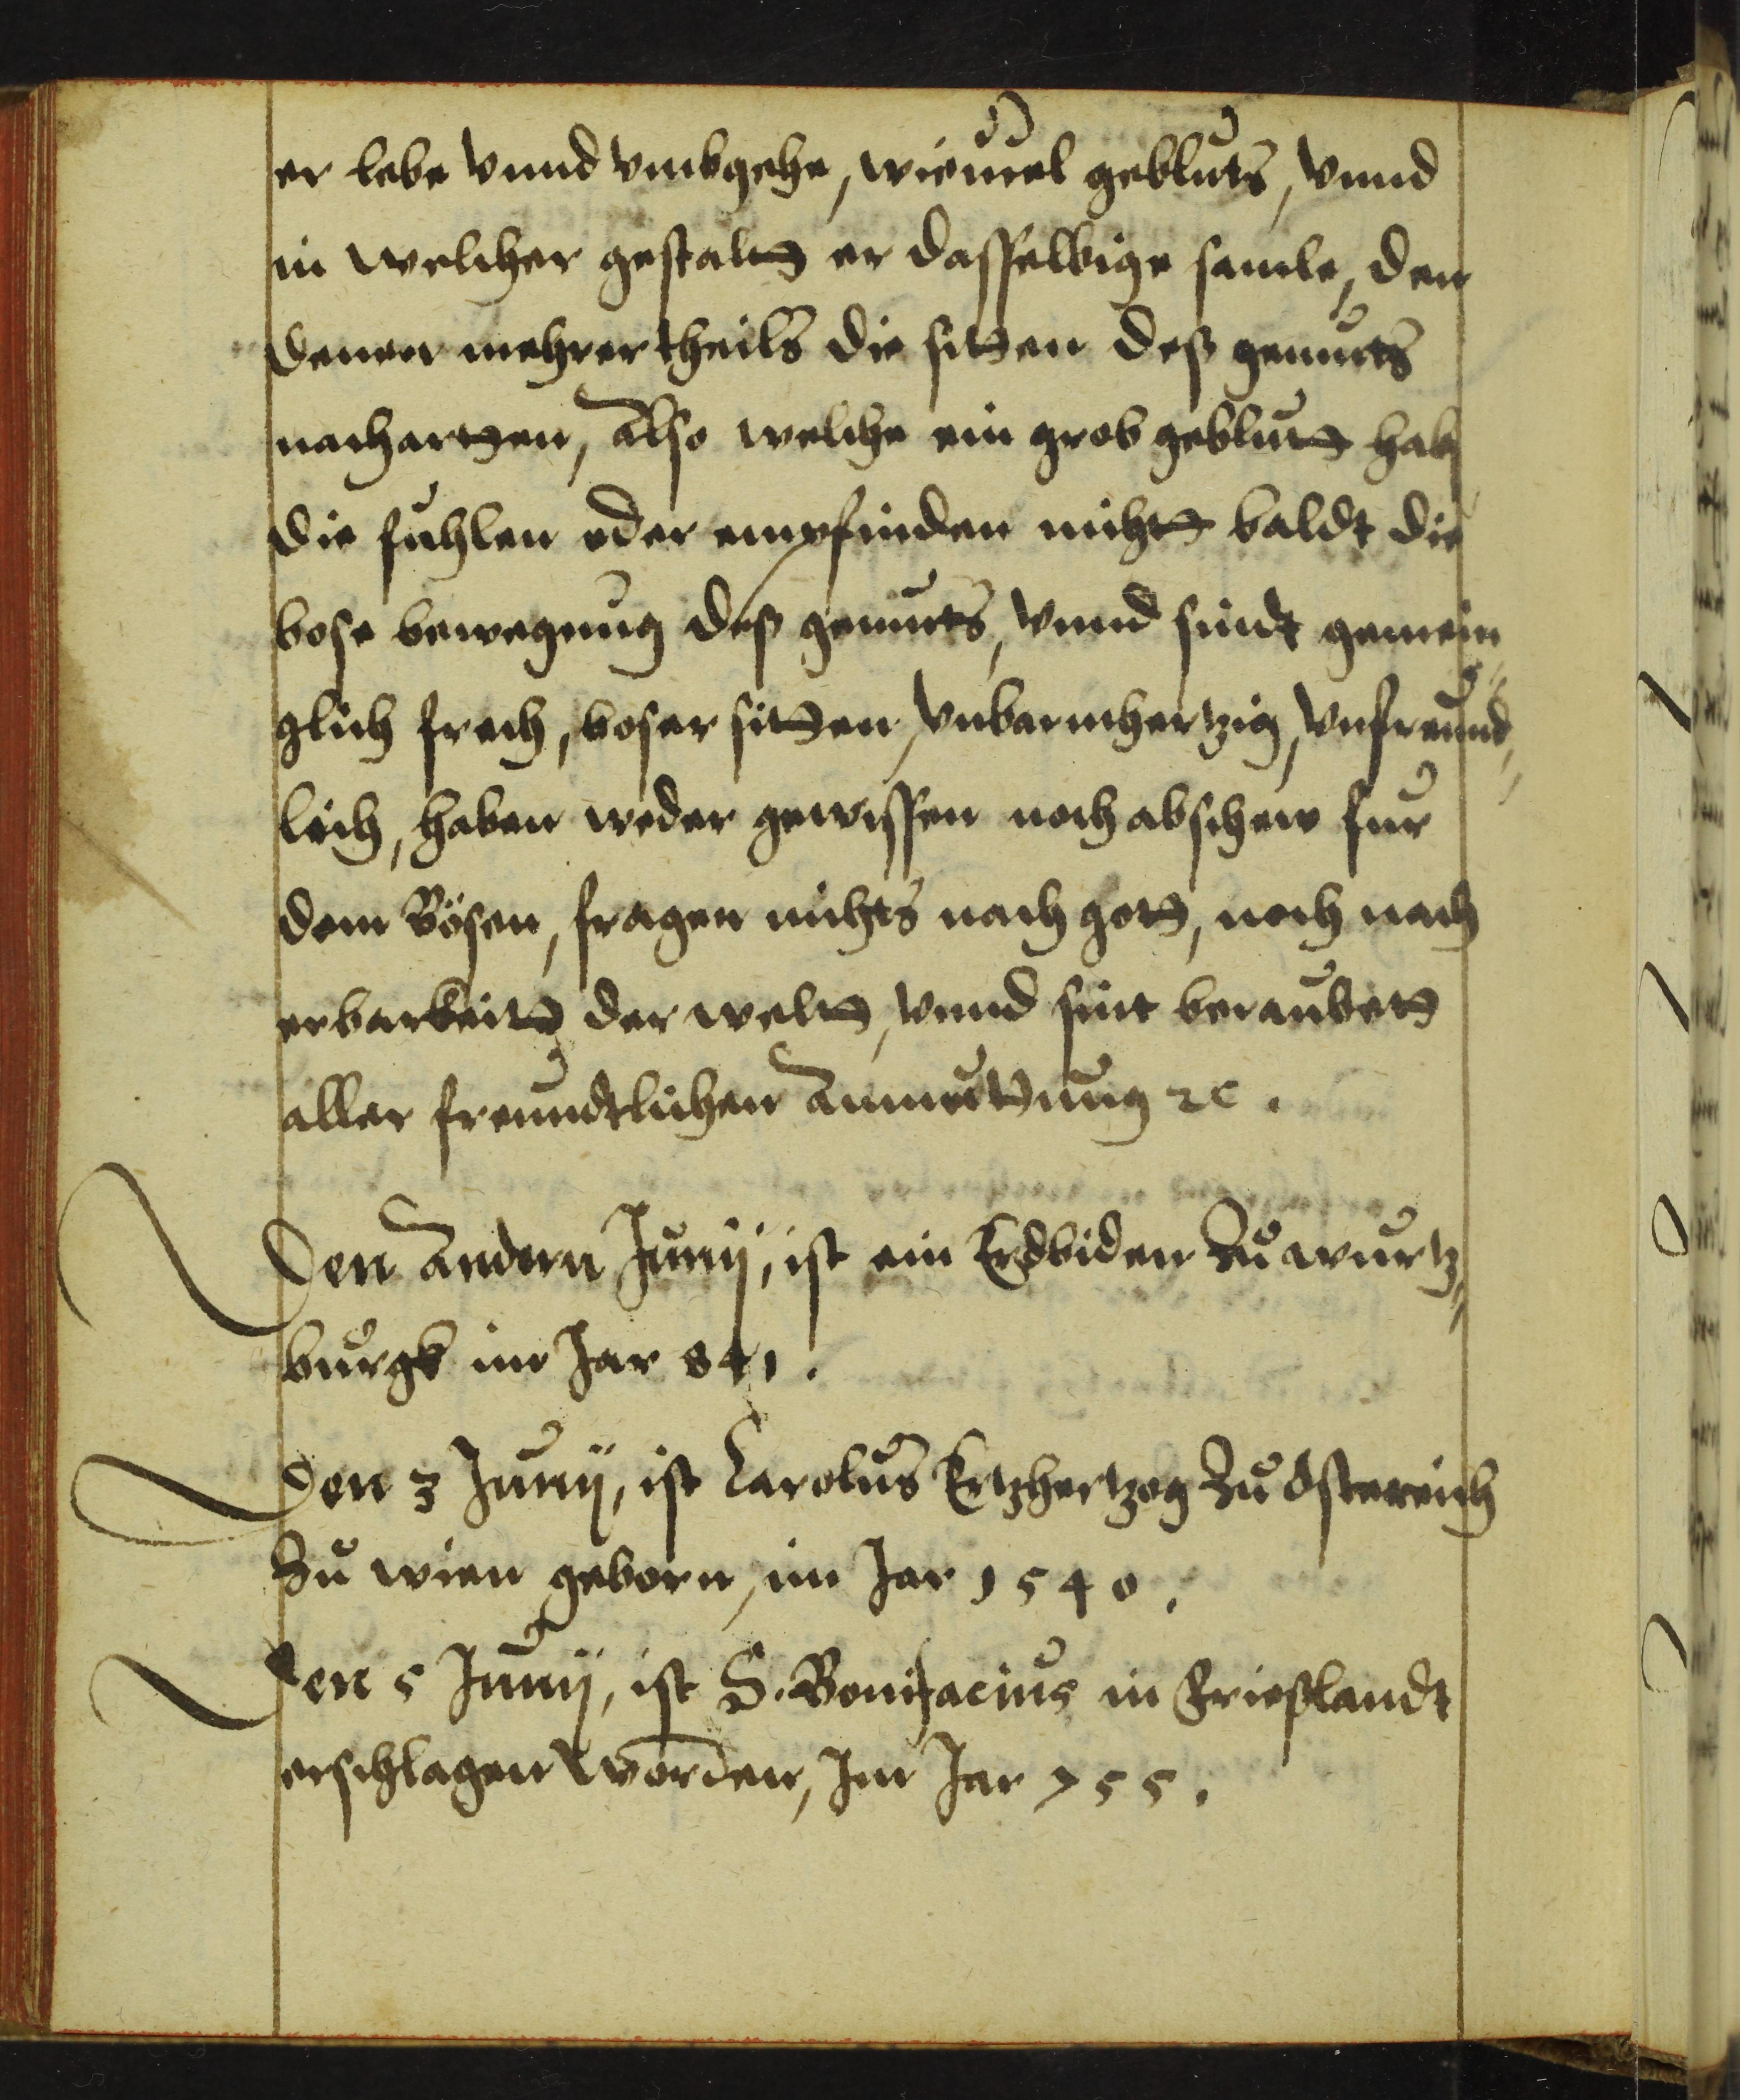 er lebe vnnd vmbgehe, wieuiel gebluts, vnnd
in welcher gestaltt er dasselbige samle, den
denen mehrertheils die sitten deß gemuts
nacharten, also welche ein grob geblutt hab
die fuhlen oder empfinden nichtt baldt die
bose bewegnug deß gemuts, vnnd sindt gemein
glich frech, boser sitten, vnbarmhertzig, vnfreund„
lich, haben weder gewissen noch abschew fur
dem Bösen, fragen nichts nach gott, noch nach
erbarkeitt der weltt, vnnd sint beraubett
aller freundtlichen anmuttnug ꝛc.
Den andern Junij, ist ein Erdbiden zu wurtz„
burgk im Jar 841.
Den 3 Junij, ist Carolus Ertzhertzog zu Ostereich
zu wien geborn, im Jar 1540.
Den 5 Junij, ist S. Bonifacius in Frießlandt
erschlagen worden, Im Jar 755.